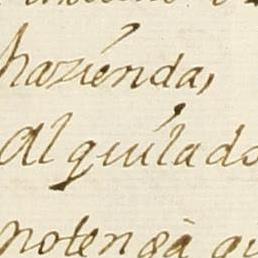 hazienda,
Alquilado
notenga qu